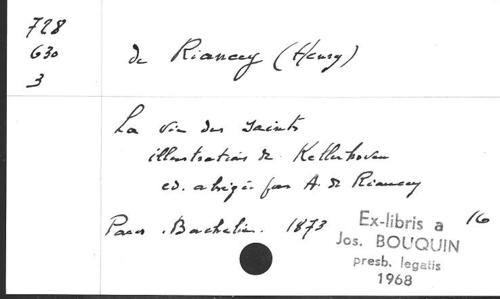 728
630
3
de Riancey (Henry)
La vie des saints
illustration de Kellerhoven
ed. abrégée par A. de Riancey
Paris. Bachelin. 1873
16
Ex-libris a
Jos. BOUQUIN
presb. legatis
1968